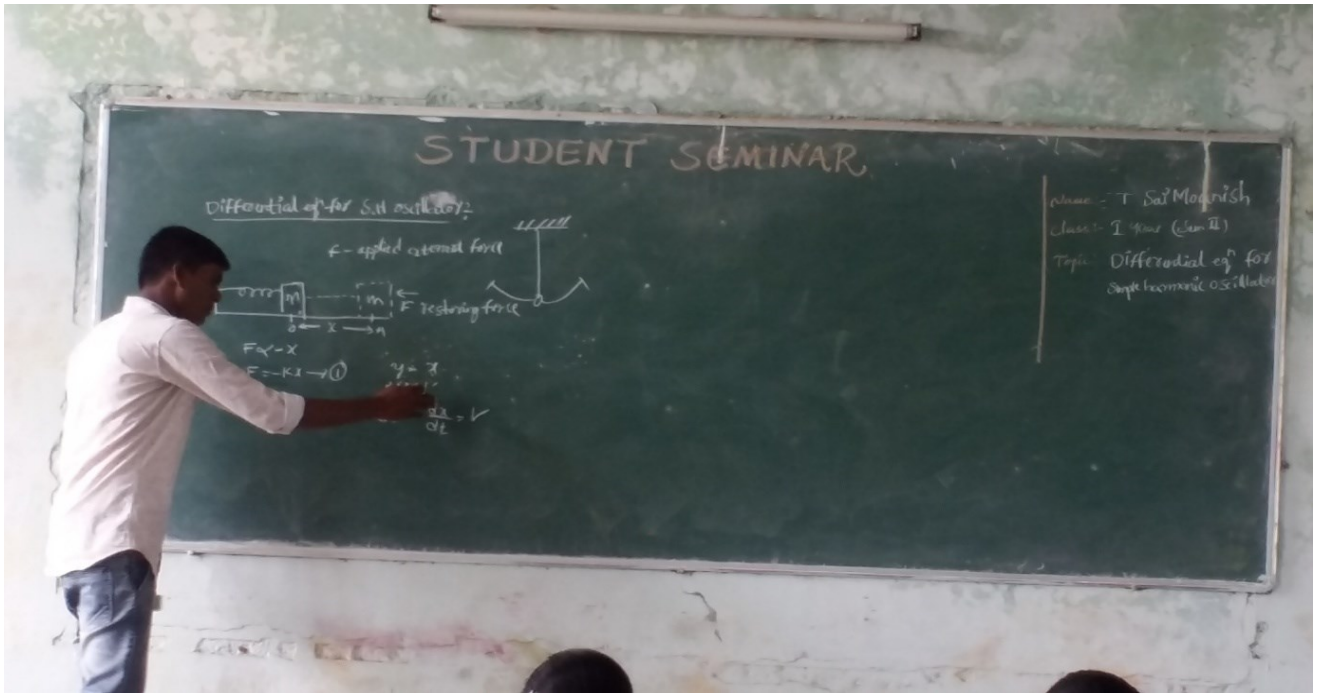 STUDENT SEMINAR
Differential eqn for S.H oscillator:
f - applied external force
m
m
F restoring force
o x a
F ∝ -x
F = -Kx → ①
y = x
dx/dt = v
Name :- T Sai Moanish
Class :- I Year (Sem II)
Topic: Differential eqn for
Simple harmonic oscillator